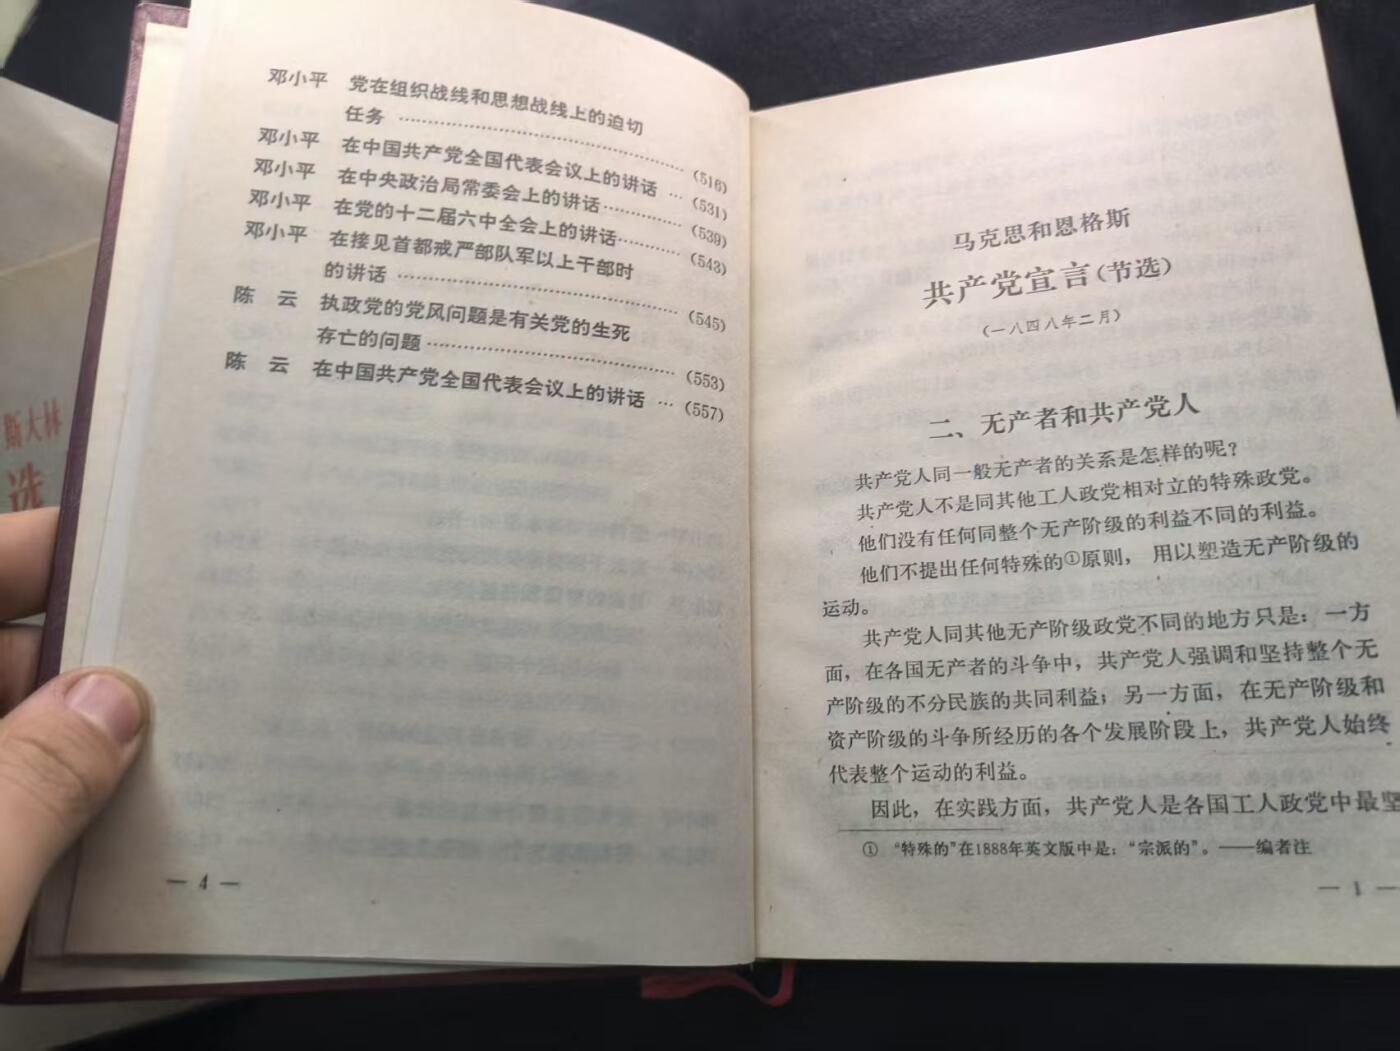 邓小平 党在组织战线和思想战线上的迫切
任务 ……………………………………(516)
邓小平 在中国共产党全国代表会议上的讲话 …(531)
邓小平 在中央政治局常委会上的讲话…………(539)
邓小平 在党的十二届六中全会上的讲话………(543)
邓小平 在接见首都戒严部队军以上干部时
的讲话 …………………………………(545)
陈 云 执政党的党风问题是有关党的生死
存亡的问题………………………………(553)
陈 云 在中国共产党全国代表会议上的讲话 …(557)
— 4 —
斯大林
选
马克思和恩格斯
共产党宣言(节选)
(一八四八年二月)
二、无产者和共产党人
共产党人同一般无产者的关系是怎样的呢?
共产党人不是同其他工人政党相对立的特殊政党。
他们没有任何同整个无产阶级的利益不同的利益。
他们不提出任何特殊的①原则,用以塑造无产阶级的
运动。
共产党人同其他无产阶级政党不同的地方只是:一方
面,在各国无产者的斗争中,共产党人强调和坚持整个无
产阶级的不分民族的共同利益;另一方面,在无产阶级和
资产阶级的斗争所经历的各个发展阶段上,共产党人始终
代表整个运动的利益。
因此,在实践方面,共产党人是各国工人政党中最坚
① “特殊的”在1888年英文版中是:“宗派的”。——编者注
— 1 —